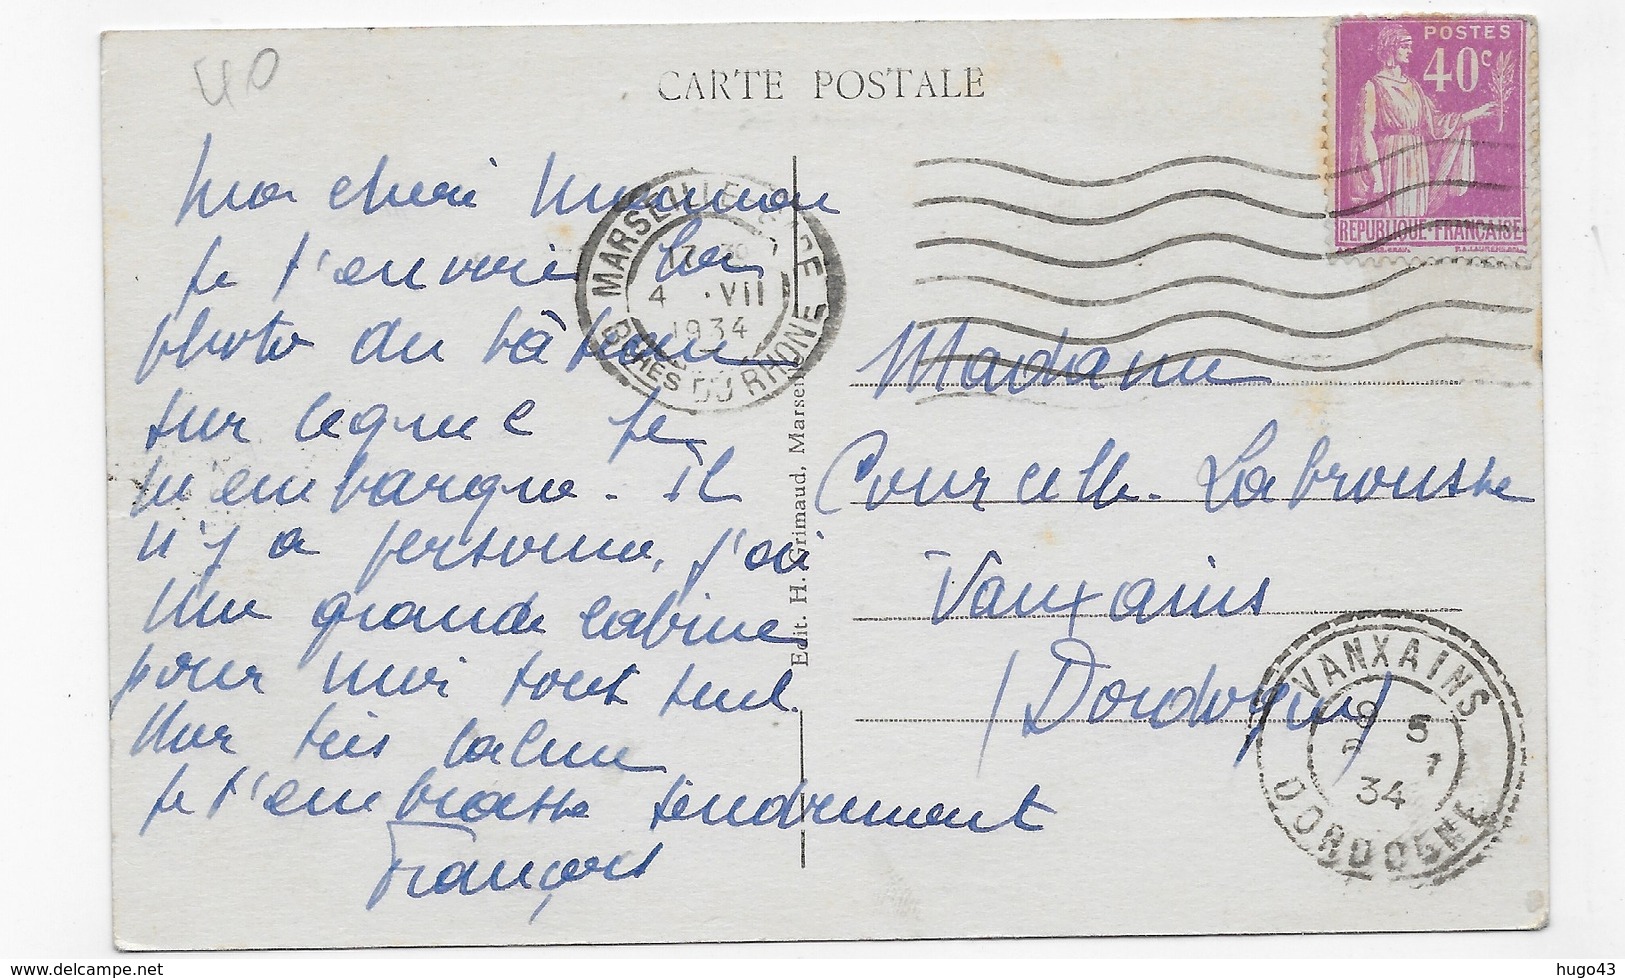 40
CARTE POSTALE
POSTES
40c
REPUBLIQUE-FRANCAISE
Ma chérie Maman
Je t'envoie la
photo du bâteau
sur lequel je
m'embarque. Il
n'y a personne, j'ai
une grande cabine
pour moi tout seul.
Mer très calme
Je t'embrasse tendrement
François
MARSEILLE GARE
17 30
4 . VII
1934
BCHES DU RHONE
Edit. H. Grimaud, Marseille
Madame
Courcelle-Labrousse
Vauxains
(Dordogne)
VANXAINS
5
7
34
DORDOGNE
hugo43